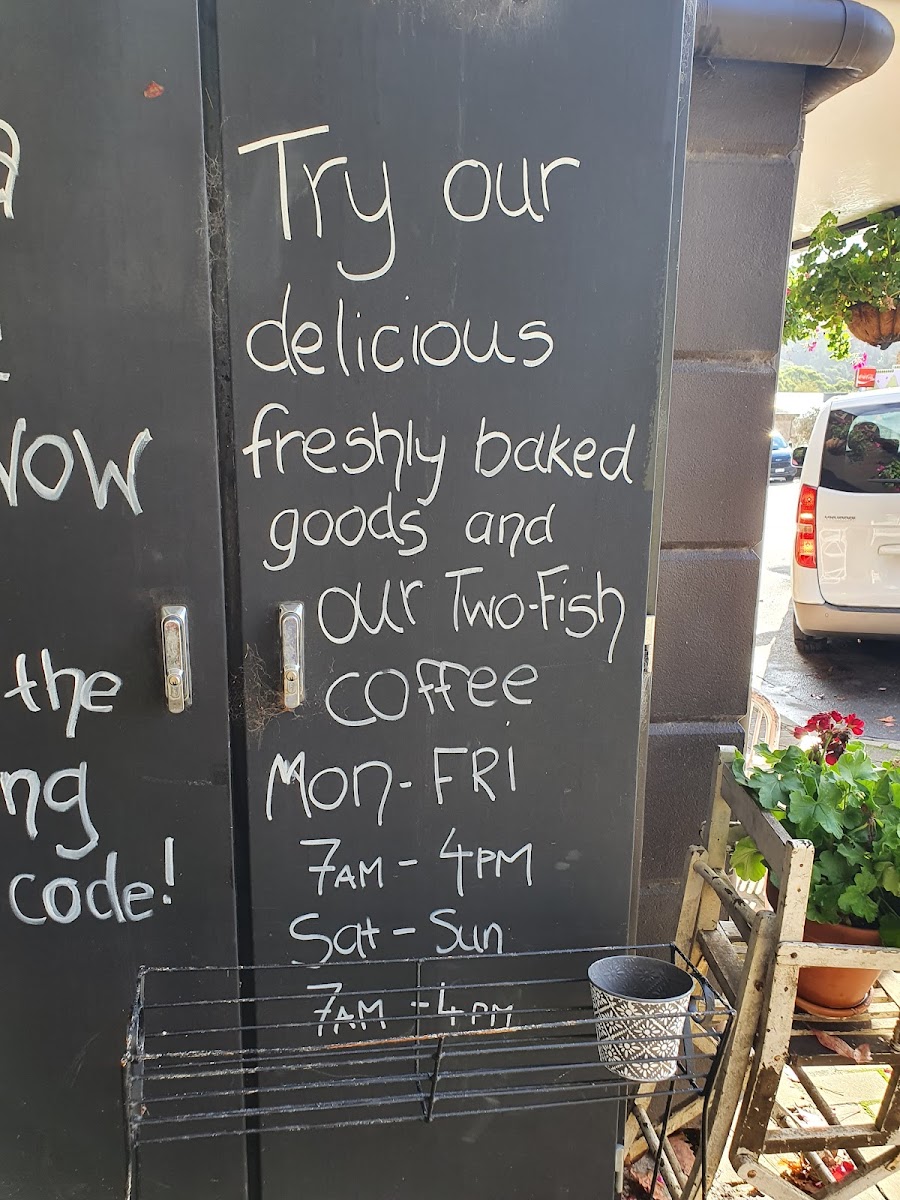 Try our
delicious
freshly baked
goods and
our Two-Fish
coffee
Mon-FRI
7AM - 4PM
Sat - Sun
7AM - 4PM
the
code!